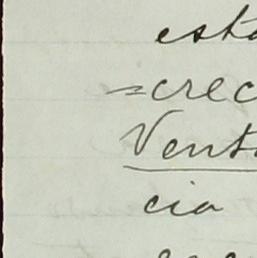 esta
=crec
Vent
cia